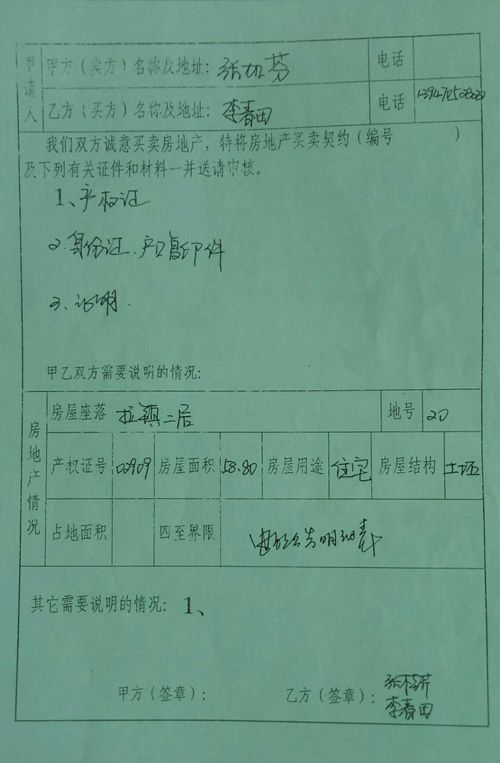 申请人
甲方（卖方）名称及地址：张 芬 电话
乙方（买方）名称及地址：李春田 电话
我们双方诚意买卖房地产，特将房地产买卖契约（编号 ）
及下列有关证件和材料一并送请审核。
1、产权证
2.身份证、户口复印件
3、证明.
甲乙双方需要说明的情况：
房地产情况
房屋座落 拉镇二居 地号 20
产权证号 02909 房屋面积 58.80 房屋用途 住宅 房屋结构 土坯
占地面积 四至界限
其它需要说明的情况：1、
甲方（签章）： 乙方（签章）：
李春田